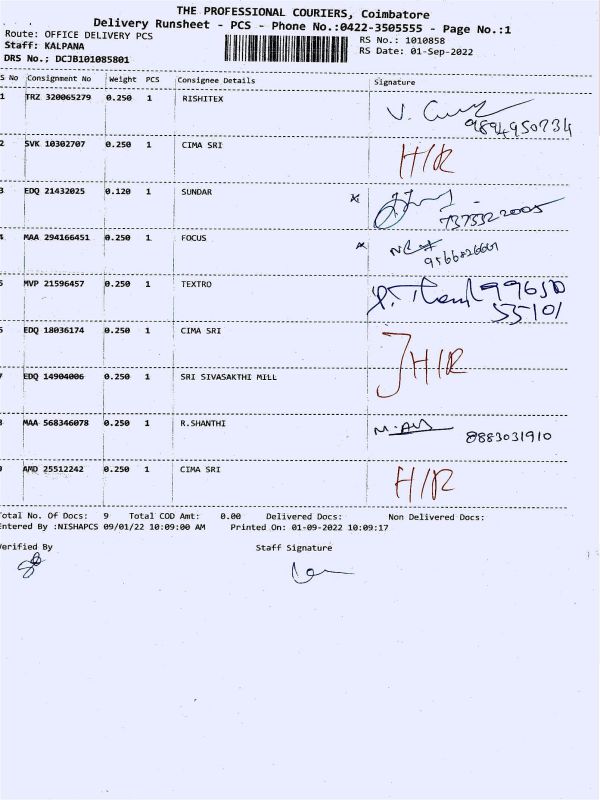 THE PROFESSIONAL COURIERS, Coimbatore
Delivery Runsheet - PCS - Phone No.:0422-3505555 - Page No.:1
Route: OFFICE DELIVERY PCS
RS No.: 1010858
Staff: KALPANA
RS Date: 01-Sep-2022
DRS No.; DCJB101085801
S No Consignment No Weight PCS Consignee Details Signature
1 TRZ 320065279 0.250 1 RISHITEX
9894950734
2 SVK 10302707 0.250 1 CIMA SRI H/R
3 EDQ 21432025 0.120 1 SUNDAR
7373322005
4 MAA 294166451 0.250 1 FOCUS
5 MVP 21596457 0.250 1 TEXTRO 99650
55101
6 EDQ 18036174 0.250 1 CIMA SRI
H/R
7 EDQ 14904006 0.250 1 SRI SIVASAKTHI MILL
8 MAA 568346078 0.250 1 R.SHANTHI
8883031910
9 AMD 25512242 0.250 1 CIMA SRI H/R
Total No. Of Docs: 9 Total COD Amt: 0.00 Delivered Docs: Non Delivered Docs:
Entered By :NISHAPCS 09/01/22 10:09:00 AM Printed On: 01-09-2022 10:09:17
Verified By Staff Signature